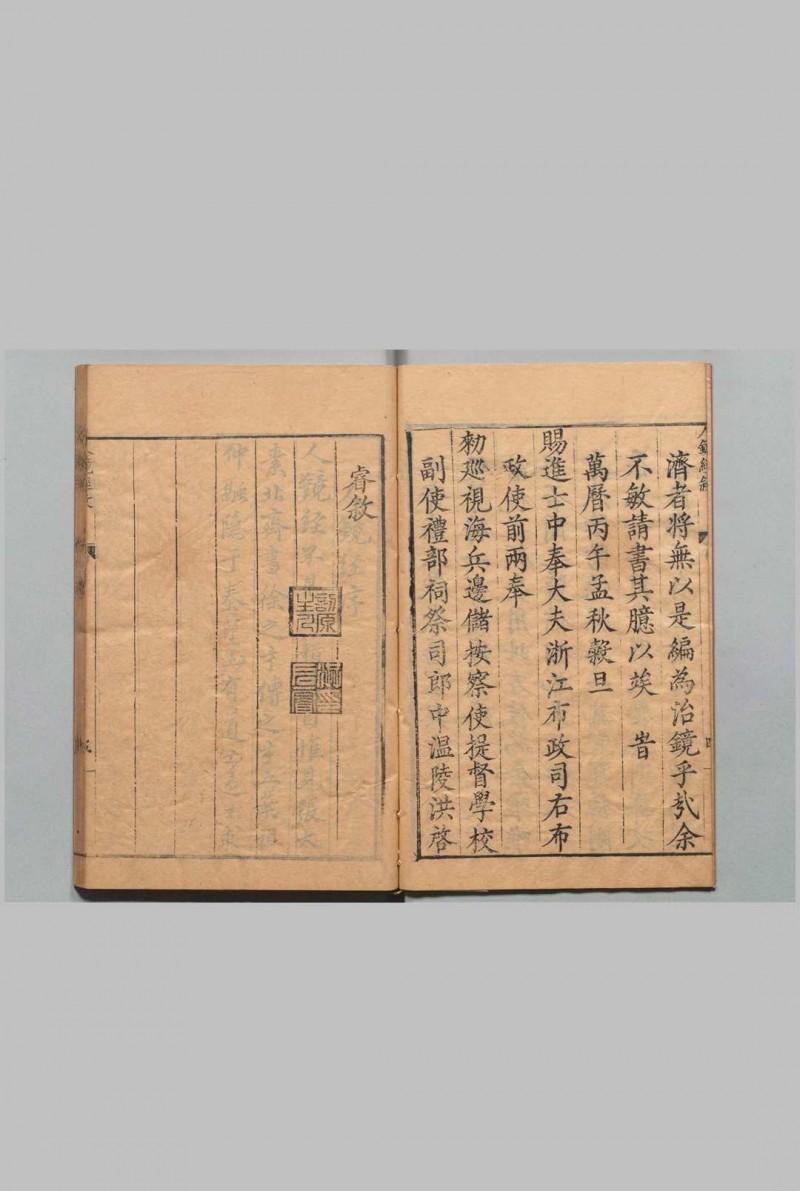 濟者將無以是編為治鏡乎㢤余
不敏請書其臆以竢 旹
萬曆丙午孟秋糓旦
賜進士中奉大夫浙江布政司右布
政使前兩奉
勑廵視海兵邊儲按察使提督學校
副使禮部祠祭司郎中温陵洪啓
睿敘